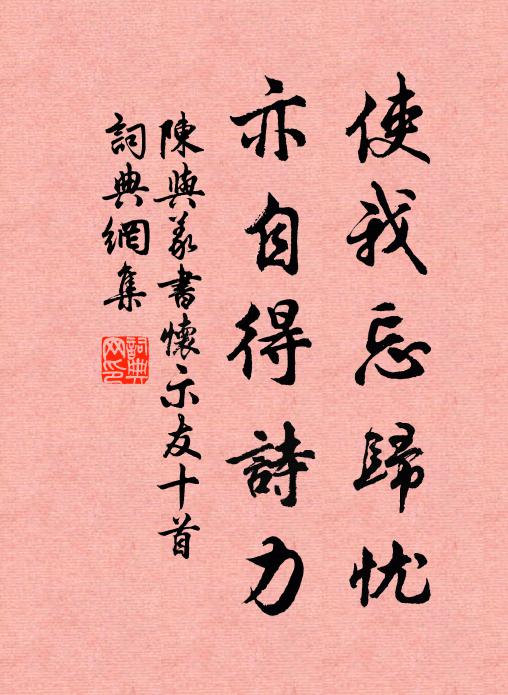 使我忘歸忧
亦自得詩力
陳與義書懷示友十首
詞典網集
詞典網印